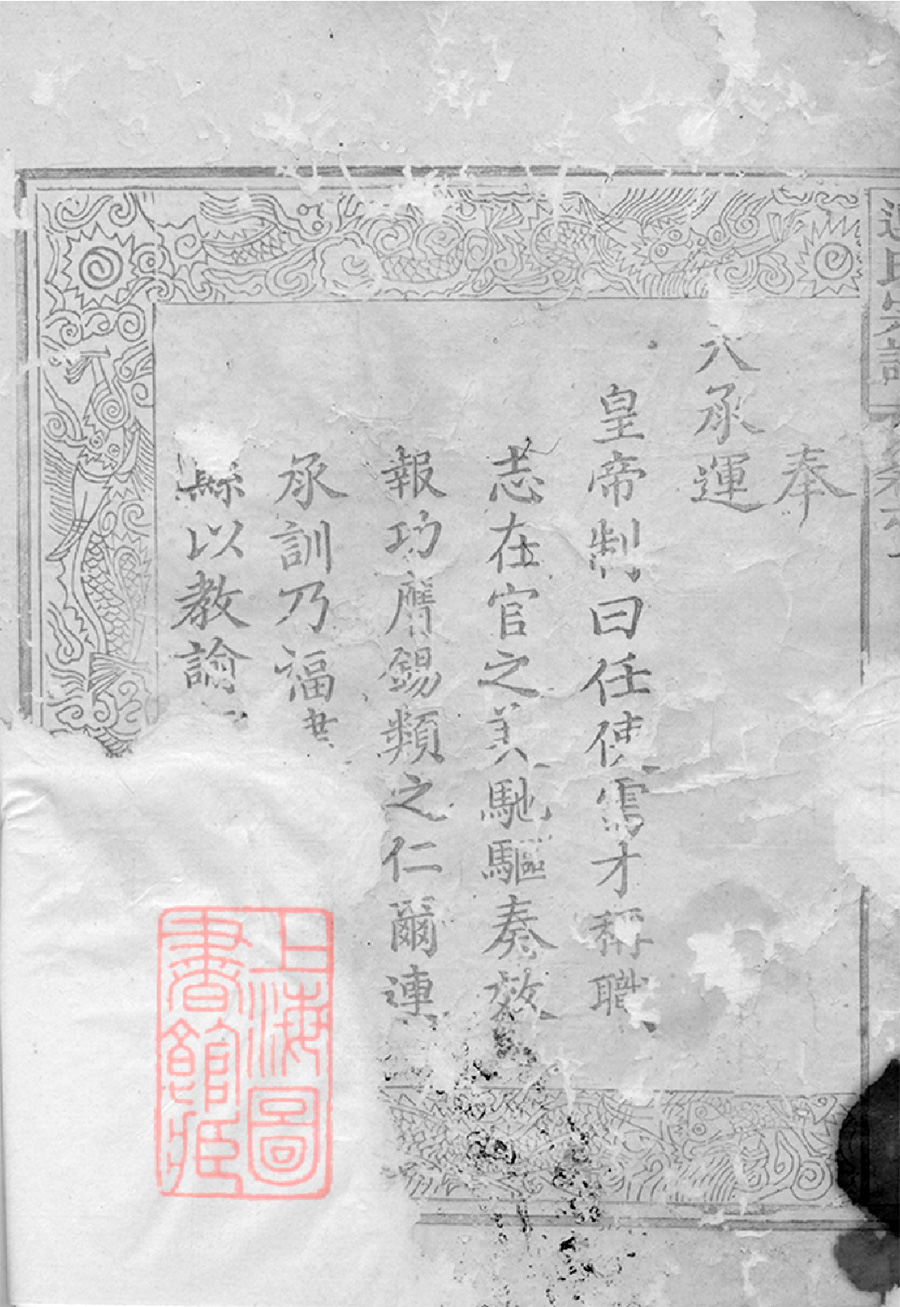 連氏宗譜
奉
天承運
皇帝制曰任使需才稱職
志在官之美馳驅奏效
報功膺錫類之仁爾連
承訓乃福
縣以教諭
上海圖
書館藏